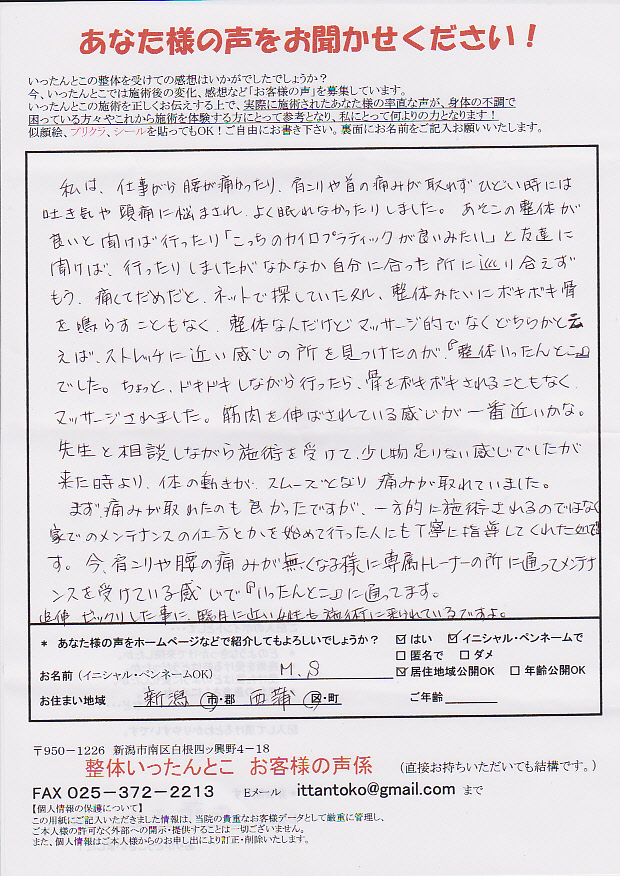 あなた様の声をお聞かせください！
いったんとこの整体を受けての感想はいかがでしたでしょうか？
今、いったんとこでは施術後の変化、感想など「お客様の声」を募集しています。
いったんとこの施術を正しくお伝えする上で、実際に施術されたあなた様の率直な声が、身体の不調で
困っている方々やこれから施術を体験する方にとって参考となり、私にとって何よりの力となります！
似顔絵、プリクラ、シールを貼ってもOK！ご自由にお書き下さい。裏面にお名前をご記入お願いいたします。
私は、仕事がら腰が痛かったり、肩こりや首の痛みが取れずひどい時には
吐き気や頭痛に悩まされ、よく眠れなかったりしました。あそこの整体が
良いと聞けば行ったり「こっちのカイロプラティックが良いみたい」と友達に
聞けば、行ったりしましたがなかなか自分に合った所に巡り合えず
もう、痛くてだめだと、ネットで探していた処、整体みたいにボキボキ骨
を鳴らすこともなく、整体なんだけどマッサージ的でなくどちらかと云
えば、ストレッチに近い感じの所を見つけたのが、『整体いったんとこ』
でした。ちょっと、ドキドキしながら行ったら、骨をボキボキされることもなく、
マッサージされました。筋肉を伸ばされている感じが一番近いかな。
先生と相談しながら施術を受けて、少し物足りない感じでしたが
来た時より、体の動きが、スムーズとなり痛みが取れていました。
まず、痛みが取れたのも良かったですが、一方的に施術されるのではなく
家でのメンテナンスの仕方とかを始めて行った人にも丁寧に指導してくれた処で
す。今、肩こりや腰の痛みが無くなる様に専属トレーナーの所に通ってメンテナ
ンスを受けている感じで『いったんとこ』に通ってます。
追伸 ビックリした事に、臨月に近い女性も施術に来られているですよ。
* あなた様の声をホームページなどで紹介してもよろしいでしょうか？ ☑はい ☑イニシャル・ペンネームで
□匿名で □ダメ
お名前（イニシャル・ペンネームOK） M.S ☑居住地域公開OK □年齢公開OK
お住まい地域 新潟 市・郡 西蒲 区・町 ご年齢
〒950－1226 新潟市南区白根四ッ興野4－18
整体いったんとこ お客様の声係 （直接お持ちいただいても結構です。）
FAX 025－372－2213 Eメール ittantoko@gmail.com まで
【個人情報の保護について】
この用紙にご記入いただきました情報は、当院の貴重なお客様データとして厳重に管理し、
ご本人様の許可なく外部への開示・提供することは一切ございません。
また、個人情報はご本人様からのお申し出により訂正・削除いたします。